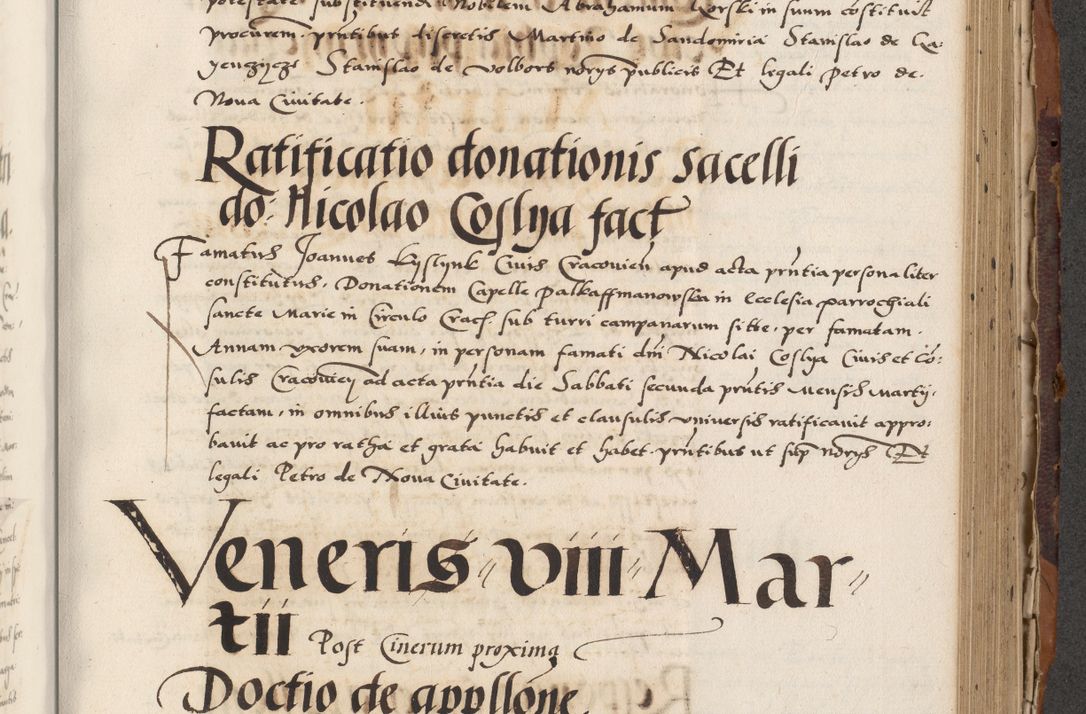 potestate substituendi Nobilem Abrahamum Korski in suum cōstituit
procurem. prñtibus discretis Martino de Sandomiria Stanislao de Ca
Stanislao de Volbors norijs publicis Et legali Petro de
Noua Ciuitate.
Ratificatio donationis sacelli
do: Nicolao Coslya fact
Famatus Joannes Kyslynk Ciuis Cracouien apud acta prñtia personaliter
constitutus. Donationem Capelle Palkaffmanowska in Ecclesia parrochiali
sancte Marie in Circulo Crac. sub turri campanarum sitte. per famatam
Annam vxorem suam, in personam famati dñi Nicolai Coslya Ciuis et Cō:
sulis Cracouien ad acta prñtia die Sabbati secunda prñtis Mensis Martij.
factam. in omnibus illius punctis et clausulis vniuersis ratificauit appro:
bauit ac pro ratha et grata habuit et habet prñtibus ut sup norijs Et
legali Petro de Noua Ciuitate.
Veneris VIII Mar
tii Post Cinerum proxima
Doctio de appllōne